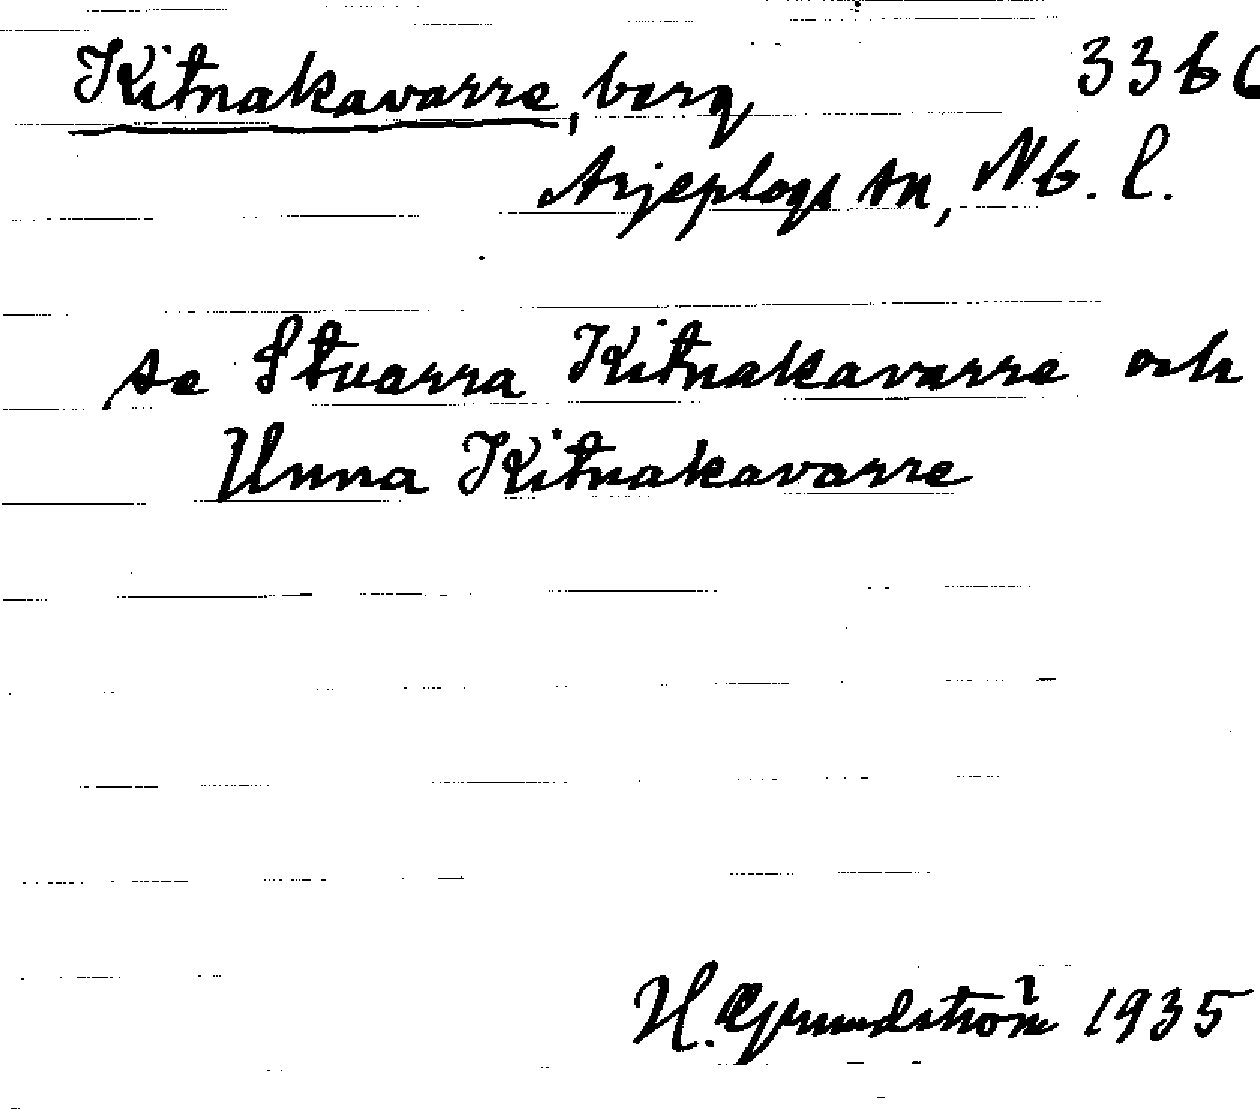 Kitnakavarre, berg 336
Arjeplogs sn, Nb. l.
se Stuarra Kitnakavarre och
Unna Kitnakavarre
H. Grundström 1935